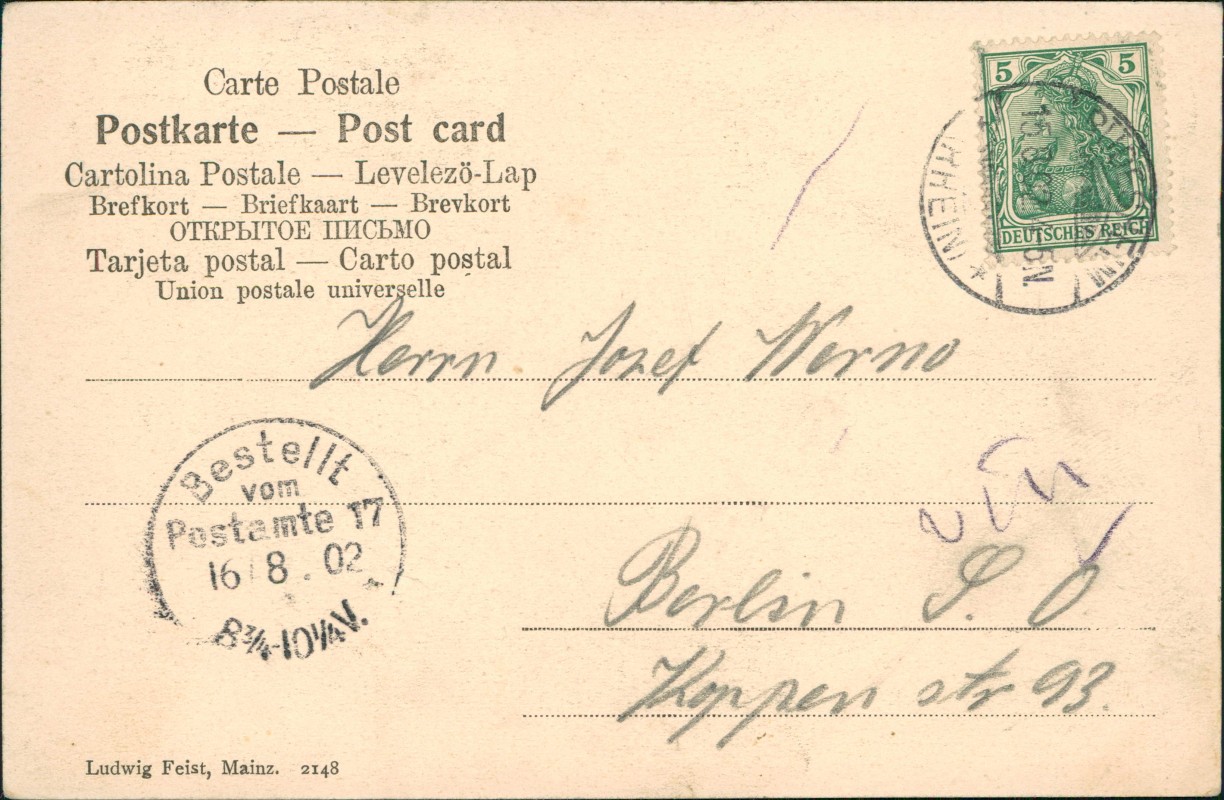 Carte Postale
Postkarte — Post card
Cartolina Postale — Levelezö-Lap
Brefkort — Briefkaart — Brevkort
ОТКРЫТОЕ ПИСЬМО
Tarjeta postal — Carto postal
Union postale universelle
5 5
DEUTSCHES REICH
(RHEIN)
Herrn Jozef Werno
Bestellt
vom
Postamte 17
16 8. 02
8¾-10¼V.
Berlin S. O
Koppen str 93.
Ludwig Feist, Mainz. 2148